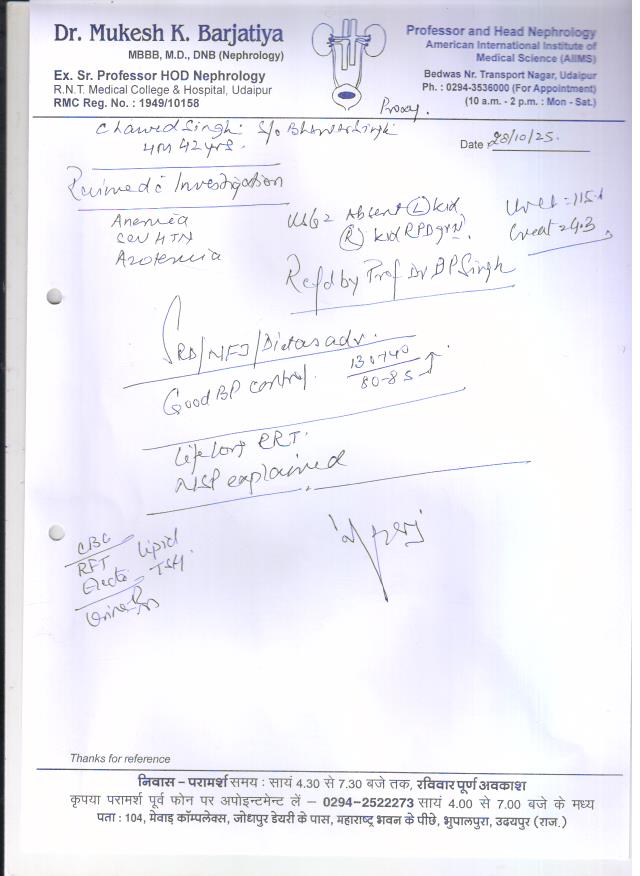 Dr. Mukesh K. Barjatiya
MBBB, M.D., DNB (Nephrology)
Ex. Sr. Professor HOD Nephrology
R.N.T. Medical College & Hospital, Udaipur
RMC Reg. No. : 1949/10158
Professor and Head Nephrology
American International Institute of
Medical Science (AIIMS)
Bedwas Nr. Transport Nagar, Udaipur
Ph. : 0294-3536000 (For Appointment)
(10 a.m. - 2 p.m. : Mon - Sat.)
Proxy.
Singh S/o
42 yrs.
Date : 28/10/25.
Investigation
Anemia
HTN
Azotemia
USG = Absent (L) kid
(R) kid RPD
Creat = 4.3
Refd by Prof Dr BP Singh
Good BP control.
130-140
80-85
Life long RRT.
explained
CBC
RFT
Lipid
TSH
Urine
Thanks for reference
निवास – परामर्श समय : सायं 4.30 से 7.30 बजे तक, रविवार पूर्ण अवकाश
कृपया परामर्श पूर्व फोन पर अपोइन्टमेन्ट लें – 0294-2522273 सायं 4.00 से 7.00 बजे के मध्य
पता : 104, मेवाड़ कॉम्पलेक्स, जोधपुर डेयरी के पास, महाराष्ट्र भवन के पीछे, भुपालपुरा, उदयपुर (राज.)